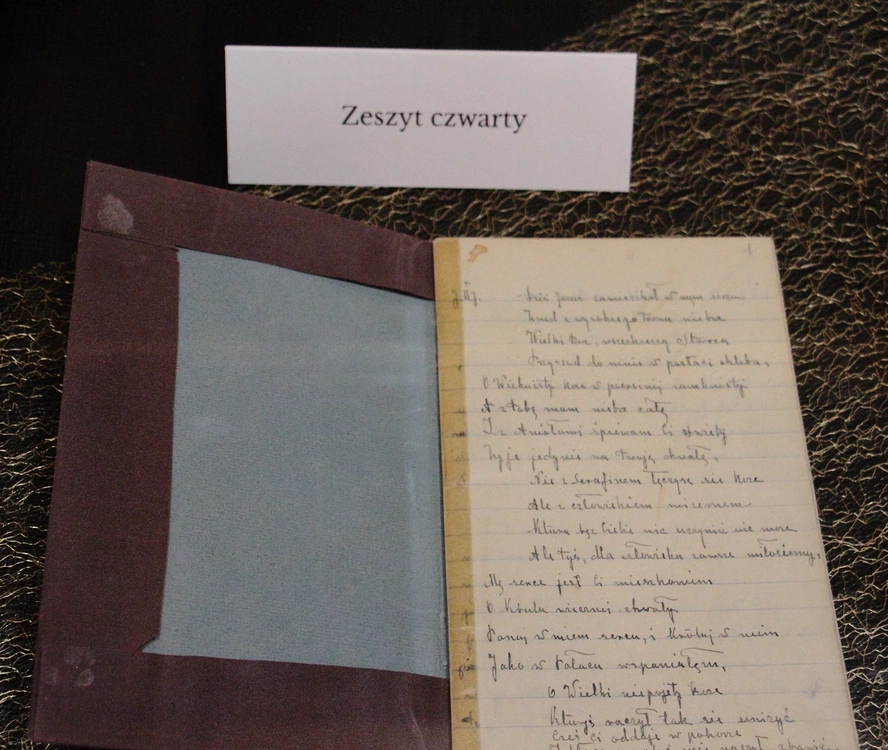 Zeszyt czwarty
1
J.M.J.
Dziś Jezus zamieszkał w mym sercu
Zszed z wysokiego tronu nieba
Wielki Pan, wszechrzeczy Stwórca
Przyszed do mnie w postaci chleba,
O Wiekuisty Boże w piersi mej zamknięty
A z Tobą mam niebo całe
I z Aniołami śpiewam Ci Święty
Żyję jedynie na Twoją chwałę,
Nie z Serafinem łączysz się Boże
Ale z człowiekiem nizernem
Który bez Ciebie nic uczynić nie może
Ale Tyś, dla człowieka zawsze miłosierny,
Me serce jest Ci mieszkaniem
O Królu wiecznej chwały
Panuj w miem sercu, i króluj w niem
Jako w Pałacu wspaniałem,
O Wielki niepojęty Boże
Któryś raczył tak się uniżyć
Cześć Ci oddaję w pokorze